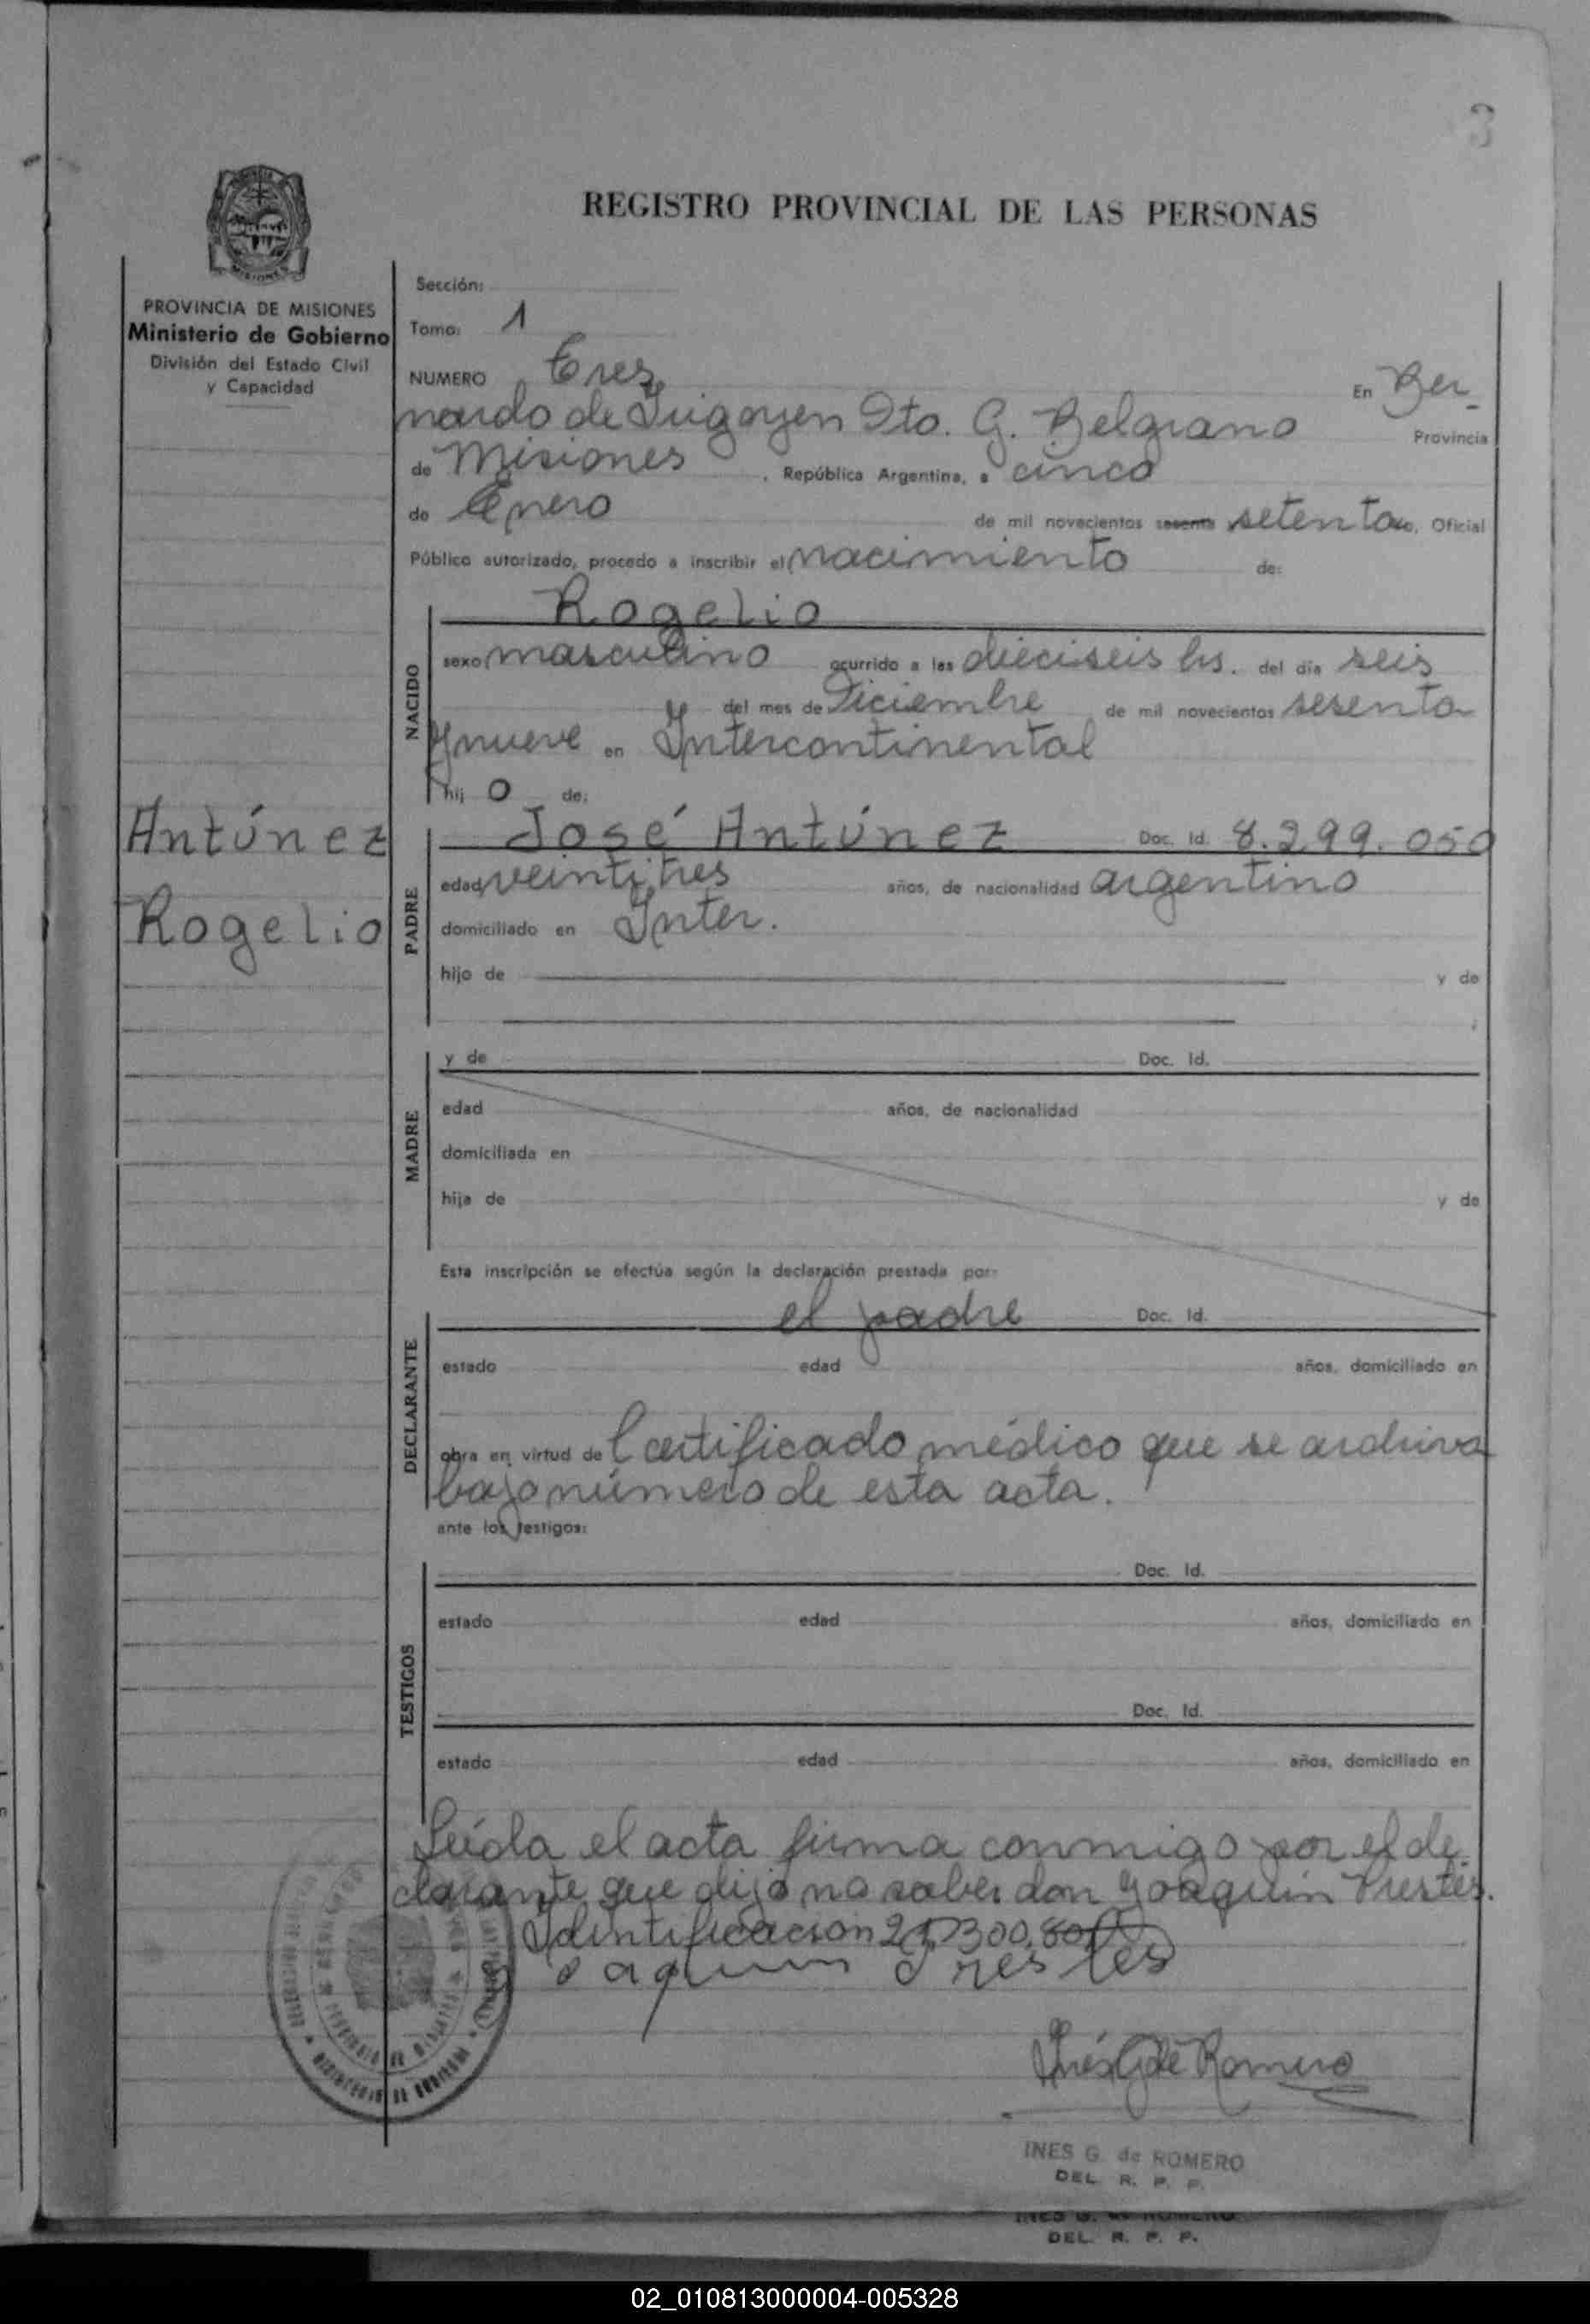 3
REGISTRO PROVINCIAL DE LAS PERSONAS
PROVINCIA DE MISIONES
Ministerio de Gobierno
División del Estado Civil
y Capacidad
Sección:
Tomo: 1
NUMERO Tres En Ber-
nardo de Irigoyen Dto. G. Belgrano Provincia
de Misiones, República Argentina, a cinco
de Enero de mil novecientos sesenta setenta Oficial
Público autorizado, procedo a inscribir el nacimiento de:
Rogelio
NACIDO
sexo masculino ocurrido a las dieciseis hs. del día seis
del mes de Diciembre de mil novecientos sesenta
y nueve en Intercontinental
hij o de:
Antúnez
Rogelio
PADRE
José Antúnez Doc. Id. 8.299.050
edad veintitres años, de nacionalidad argentino
domiciliado en Inter.
hijo de y de
MADRE
y de Doc. Id.
edad años, de nacionalidad
domiciliada en
hija de y de
Esta inscripción se efectúa según la declaración prestada por:
DECLARANTE
el padre Doc. Id.
estado edad años, domiciliado en
obra en virtud de Certificado médico que se archiva
bajo número de esta acta.
ante los testigos:
TESTIGOS
Doc. Id.
estado edad años, domiciliado en
Doc. Id.
estado edad años, domiciliado en
Leída el acta firma conmigo por el de-
clarante que dijo no saber don Joaquin Prestes.
Identificacion
Joaquin Prestes
Inés G de Romero
INES G. de ROMERO
DEL. R. P. P.
INES G. de ROMERO
DEL. R. P. P.
02_010813000004-005328